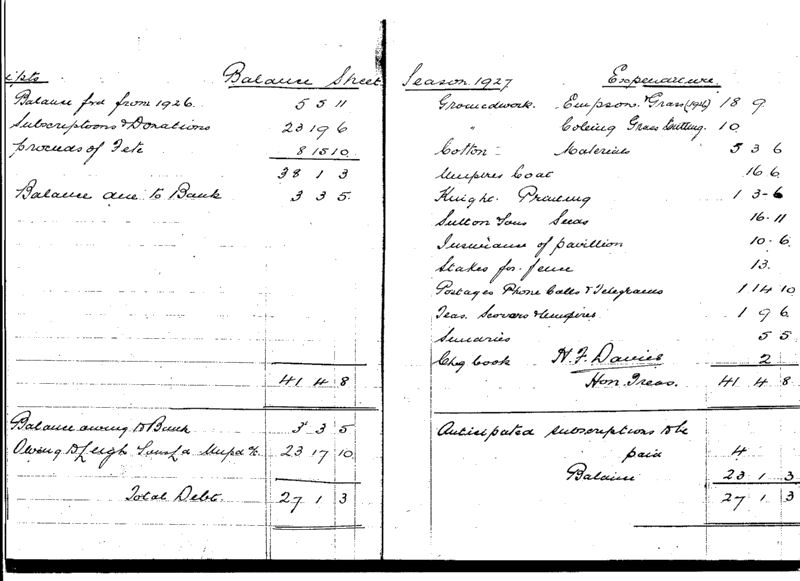 ipts Balance Sheet
Balance frd from 1926. 5 5 11
Subscriptions & Donations 23 19 6
proceeds of Fete 8 15 10
38 1 3
Balance due to Bank 3 3 5
41 4 8
Balance owing to Bank 3 3 5
Owing to Leigh Sons Ld 23 17 10
Total Debt. 27 1 3
Season 1927 Expenditure
Groundwork. Empson & Grass (1926) 18 9
" Grass Cutting. 10
Cotton - Materials 5 3 6
Umpires Coat 16 6
Knight. Printing 1 3-6
Sutton Sons Seeds 16-11
Insurance of pavillion 10-6
Stakes for fence 13.
Postages Phone Calls & Telegrams 1 14 10
Teas. Scorers & Umpires 1 9 6
Sundries 5 5
Chq book 2
H. F. Davies
Hon. Treas. 41 4 8
Anticipated subscriptions to be
paid 4
Balance 23 1 3
27 1 3